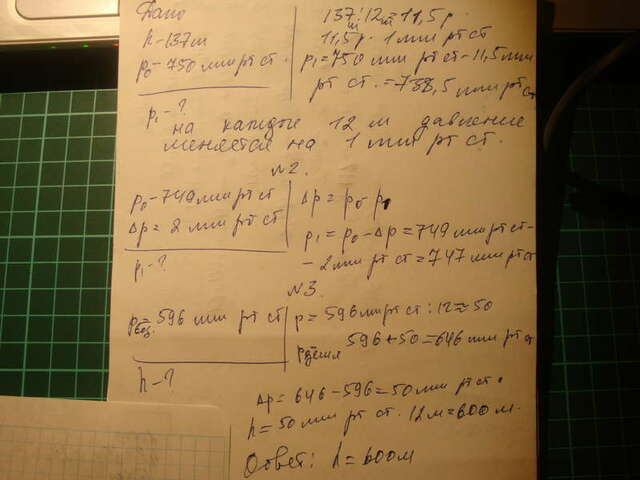 Дано
h - 137м
p₀ - 750 мм рт ст.
p₁ - ?
137 : 12 = 11,5 р.
11,5 р. · 1 мм рт ст
p₁ = 750 мм рт ст - 11,5 мм
рт ст. = 738,5 мм рт ст
на каждые 12 м давление
меняется на 1 мм рт ст.
№2.
p₀ - 749 мм рт ст
Δp = 2 мм рт ст
p₁ - ?
Δp = p₀ p₁
p₁ = p₀ - Δp = 749 мм рт ст -
- 2 мм рт ст = 747 мм рт ст
№3.
pвоз. = 596 мм рт ст
h - ?
p = 596 мм рт ст : 12 ≈ 50
596 + 50 = 646 мм рт ст
Δp = 646 - 596 = 50 мм рт ст.
h = 50 мм рт ст · 12 м = 600 м.
Ответ: h = 600 м